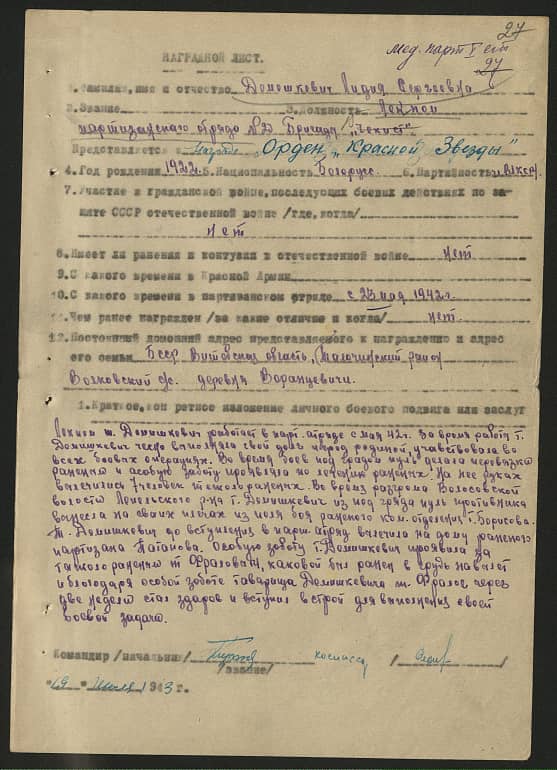 27
мед. парт I ст
27
НАГРАДНОЙ ЛИСТ.
1. Фамилия, имя и отчество Домошкевич Лидия Сергеевна
2. Звание 3. Должность Лекпом
партизанского отряда №2 Бригады "Чекист"
Представляется к Орден "Красной Звезды"
4. Год рождения 1922 г. 5. Национальность Белорус 6. Партийность чл. ВЛКСМ
7. Участие в гражданской войне, последующих боевых действиях по за-
щите СССР отечественной войне /где, когда/
Нет
8. Имеет ли ранения и контузии в отечественной войне Нет
9. С какого времени в Красной Армии
10. С какого времени в партизанском отряде с 23 мая 1942 г.
11. Чем ранее награжден /за какие отличие и когда/ Нет.
12. Постоянный домашний адрес представляемого к награждению и адрес
его семьи БССР Витебская область, Толочинский район
Волковский с/с. деревня Воранцевичи.
1. Краткое, кон ретное изложение личного боевого подвига или заслуг
Лекпом т. Домошкевич работает в парт. отряде с мая 42 г. За время работы т.
Домошкевич чесно выполняла свой долг перед родиной, участвовала во
всех боевых операциях. Во время боев под градом пуль делала перевязки
раненым и особую заботу проявляла по лечению раненых. На нее руках
вылечились 7 человек тяжело раненых. Во время разгрома Волосовской
волости Лепельского р-на т. Домишкевич из под града пуль противника
вынесла на своих плечах из поля боя раненого ком. отделения т. Борисова.
Т. Домишкович до вступления в парт. отряд вылечила на дому раненого
партизана Патапова. Особую заботу т. Домишкевич проявила на
тяжело раненым т Фраловым, каковой был ранен в грудь на вылет
и благодаря особой заботе таварища Домишкевича т. Фралов через
две недели стал здаров и вступил в строй для выполнения своей
боевой задачи.
Командир /начальник/ комиссар
/звание/
"19" июля 1943 г.